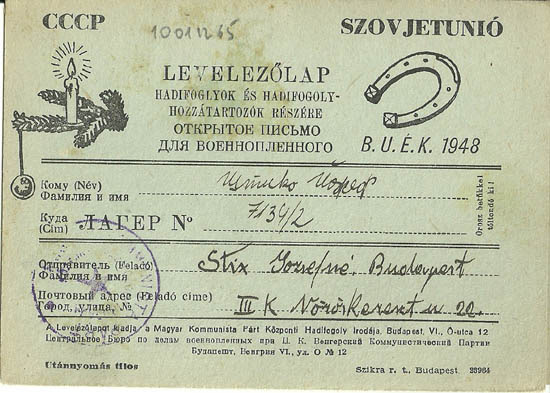 СССР
10011265
SZOVJETUNIÓ
LEVELEZŐLAP
HADIFOGLYOK ÉS HADIFOGOLY-
HOZZÁTARTOZÓK RÉSZÉRE
ОТКРЫТОЕ ПИСЬМО
ДЛЯ ВОЕННОПЛЕННОГО
B. U. É. K. 1948
Кому (Név)
Фамилия и имя
Куда (Cím) ЛАГЕР № 7139/2
Orosz betűkkel töltendő ki!
Отправитель (Feladó) Stix Józsefné. Budapest
Фамилия и имя
Почтовый адрес (Feladó címe) III K Vöröskereszt u 22.
Город, улица, №
A Levelezőlapot kiadja a Magyar Kommunista Párt Központi Hadifogoly Irodája, Budapest, VI., Ó-utca 12
Центральное Бюро по делам военнопленных при Ц. К. Венгерский Коммунистический Партии
Будапешт, Венгрия VI., ул. О № 12
Utánnyomás tilos
Szikra r. t., Budapest 23964